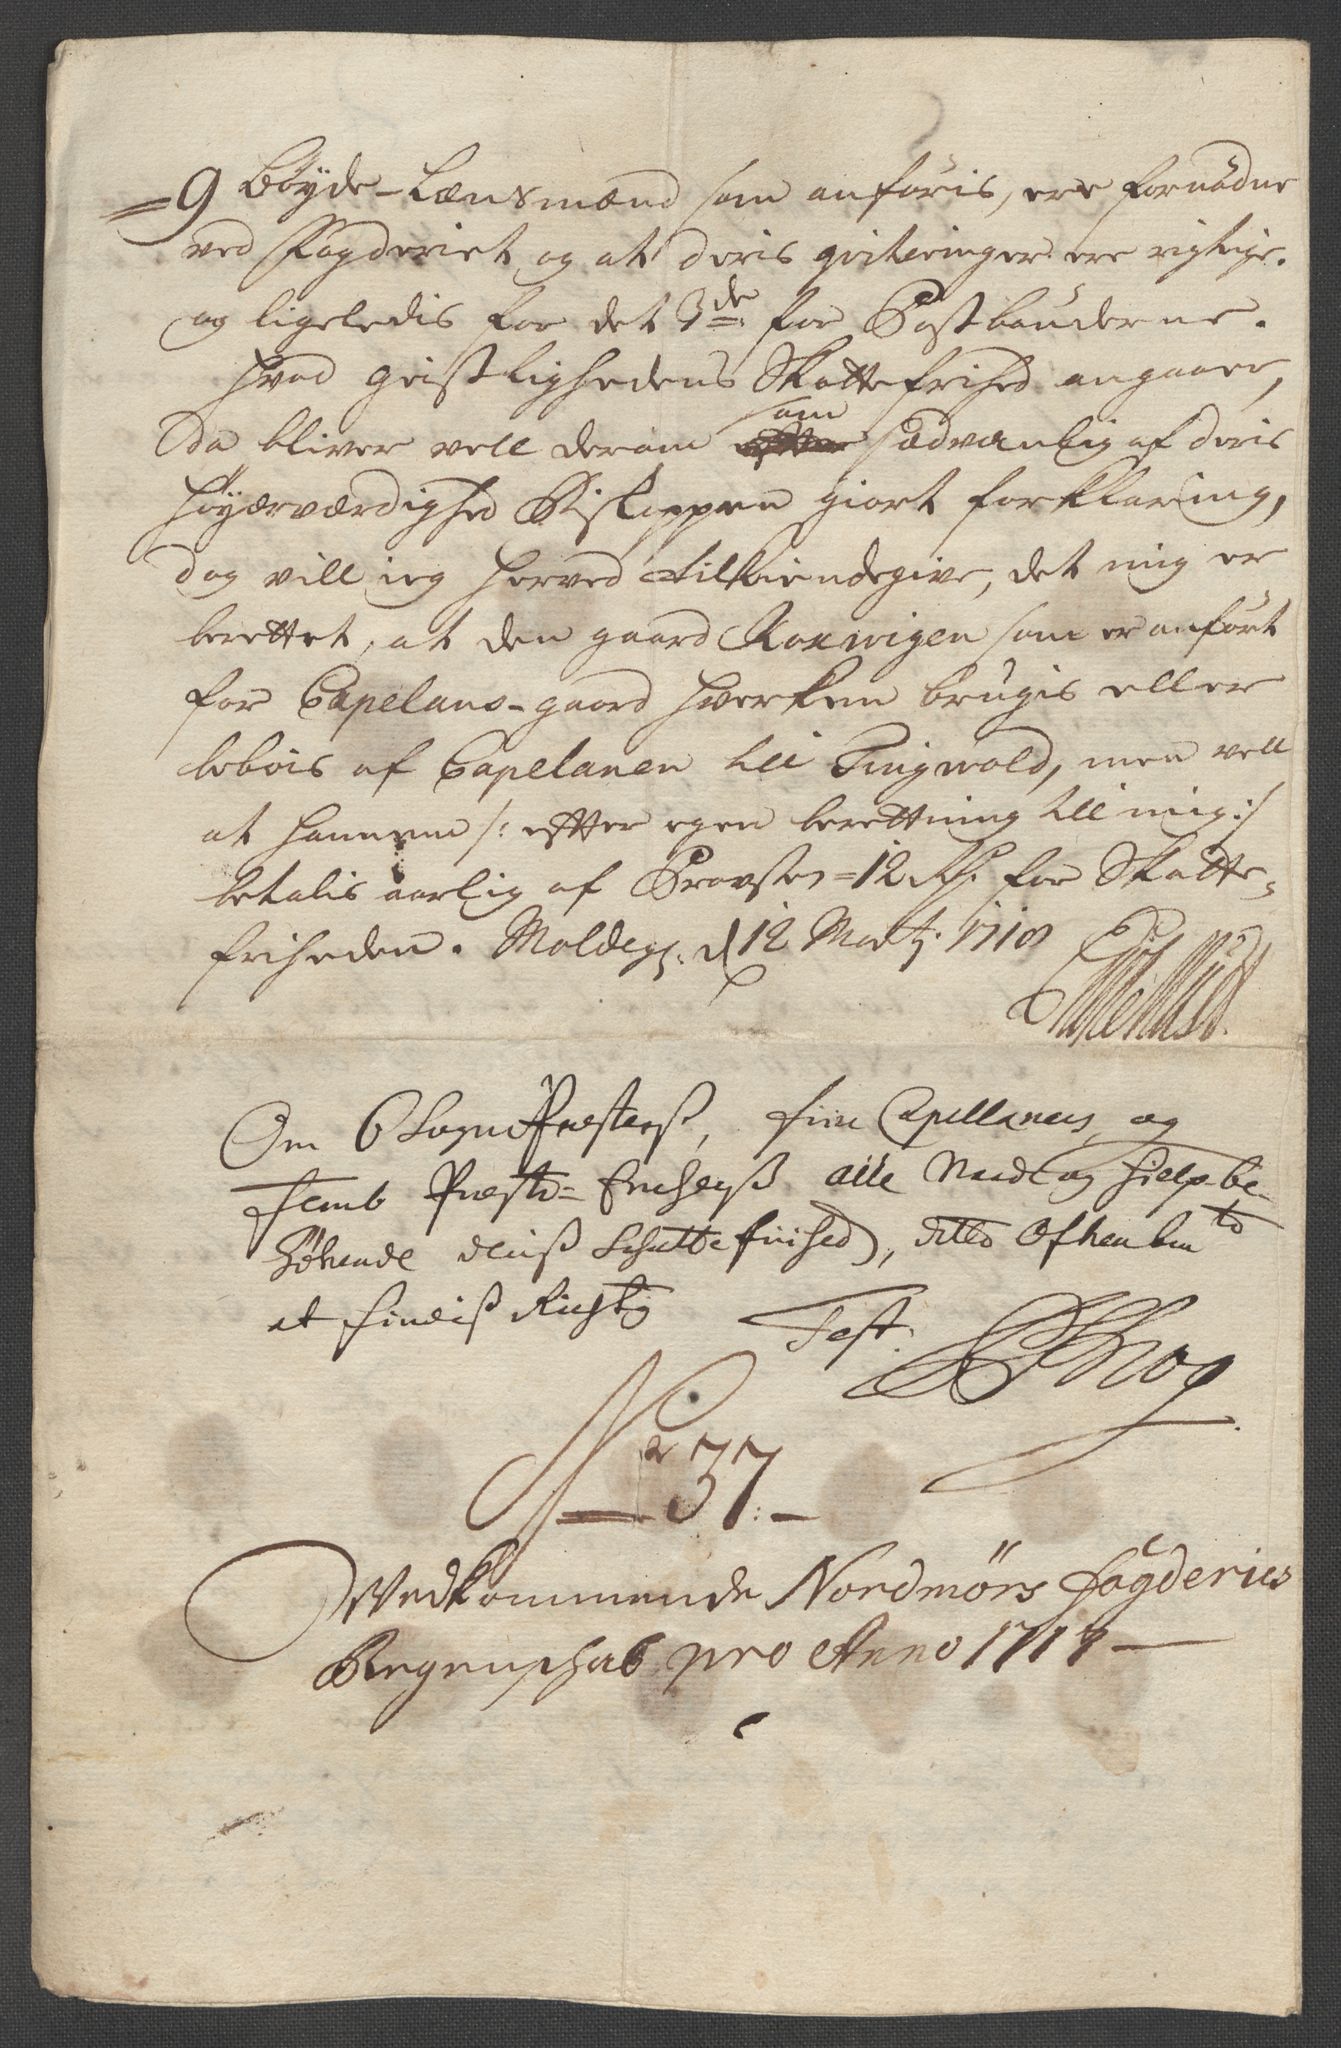 =9 Bøyde-Lænsmænd som anføris, ere fornødne
ved Fogderiet og at deris qviteringer ere rigtige.
og ligeledis for det 3de for Postbønderne.
Hvad geistlighedens Skattefrihed angaaer,
Da bliver vell derom som sædvanlig af deris
Høyærværdighed Biskoppen giort forklaring,
dog vill ieg herved tilkiendegive, det mig er
berettet, at den gaard Korwigen som er anført
for Capelans-gaard hverken brugis eller
bebois af Capelanen till Tingwold, men vell
at hannem /: efter egen berettning till mig :/
betalis aarlig af Provsten =12 Rd. for Skatte-
friheden. Moldegr. d 12 Martj. 1718
Om 6 Sogne Præsters, fire Capellaners, og
femb Præste-Encherß alle Naade og Hielp be-
høvende deriß Schatte frihed,
at findiß Richtig Test.
No 37.-
Wedkommende Nordmørs Fogderies
Regenschab pro Anno 1717 -